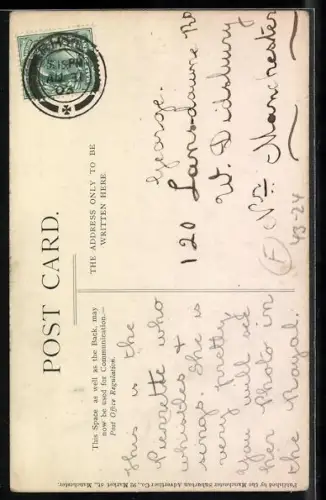 POST CARD.
This Space as well as the Back, may
now be used for Communication.—
Post Office Regulation.
THE ADDRESS ONLY TO BE
WRITTEN HERE
This is the
Pierrette who
whistles &
sings. She is
very pretty
You will see
her Photo in
the Royal.
George.
120 Lansdowne Rd
W. Didsbury
Nr Manchester
E
43-24
Published by the Manchester Suburban Advertising Co., 92 Market st., Manchester.
8.15 PM